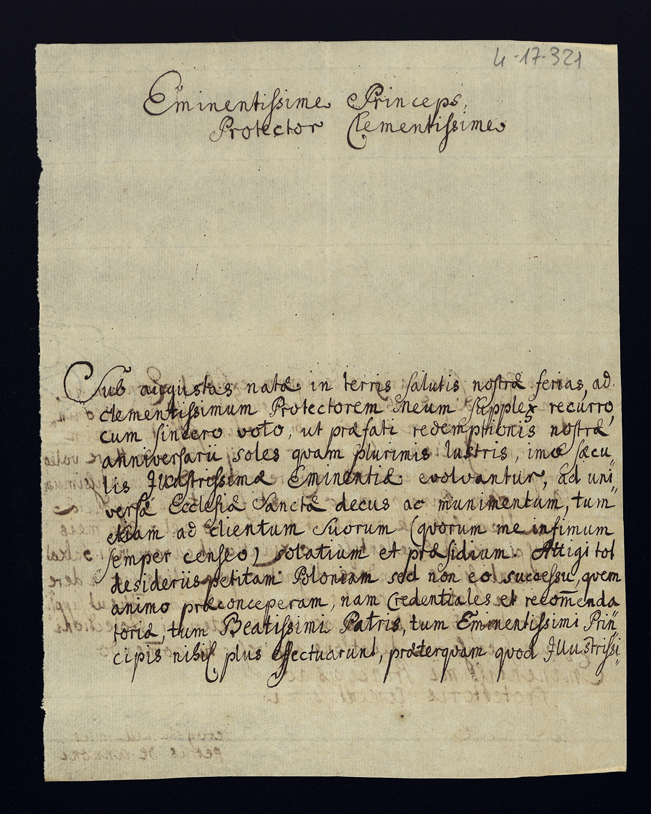 4-17-321
Eminentissime Princeps,
Protector Clementissime
Sub augustas natæ in terris salutis nostræ ferias, ad
clementissimum Protectorem meum supplex recurro,
cum sincero voto, ut præfati redemptionis nostræ
anniversarii soles quam plurimis lustris, imo sæcu
lis Illustrissimæ Eminentiæ evolvantur, ad uni
versæ Ecclesiæ Sanctæ decus ac munimentum, tum
etiam ad Clientum suorum (quorum me infimum
semper censeo) solatium et præsidium. Attigi tot
desideriis petitam Poloniam sed non eo successu, quem
animo præconceperam, nam Credentiales et recom̄enda
toriæ, tum Beatissimi Patris, tum Eminentissimi Prin
cipis nihil plus effectuarunt, præterquam quod Illustrissi-